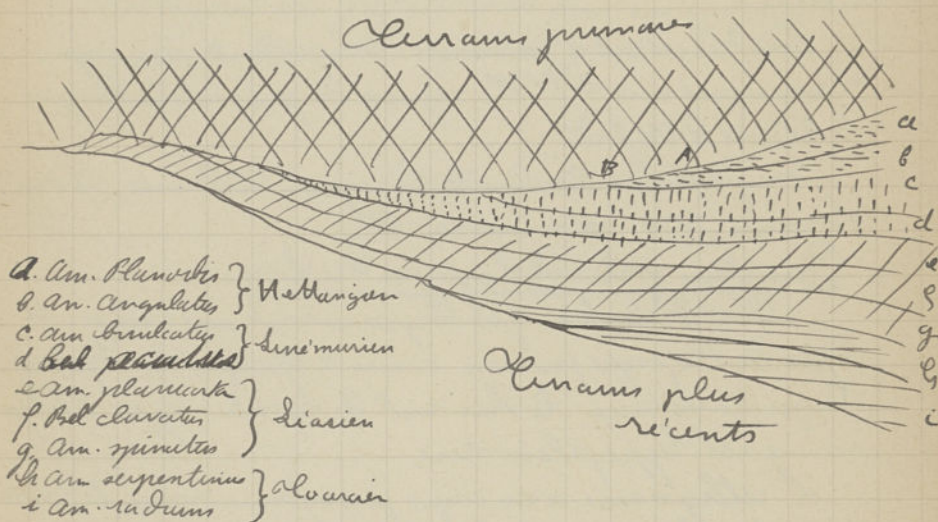 Terrains primaires
a
b
B A
c
d
e
f
g
h
i
a. Am. Planorbis
b. am. angulatus
Hettangien
c. am bisulcatus
d
Sinémurien
e am. planicosta
f. Bel clavatus
g. am. spinatus
Liasien
h am serpentinus
i am. radians
Toarcien
Terrains plus
récents